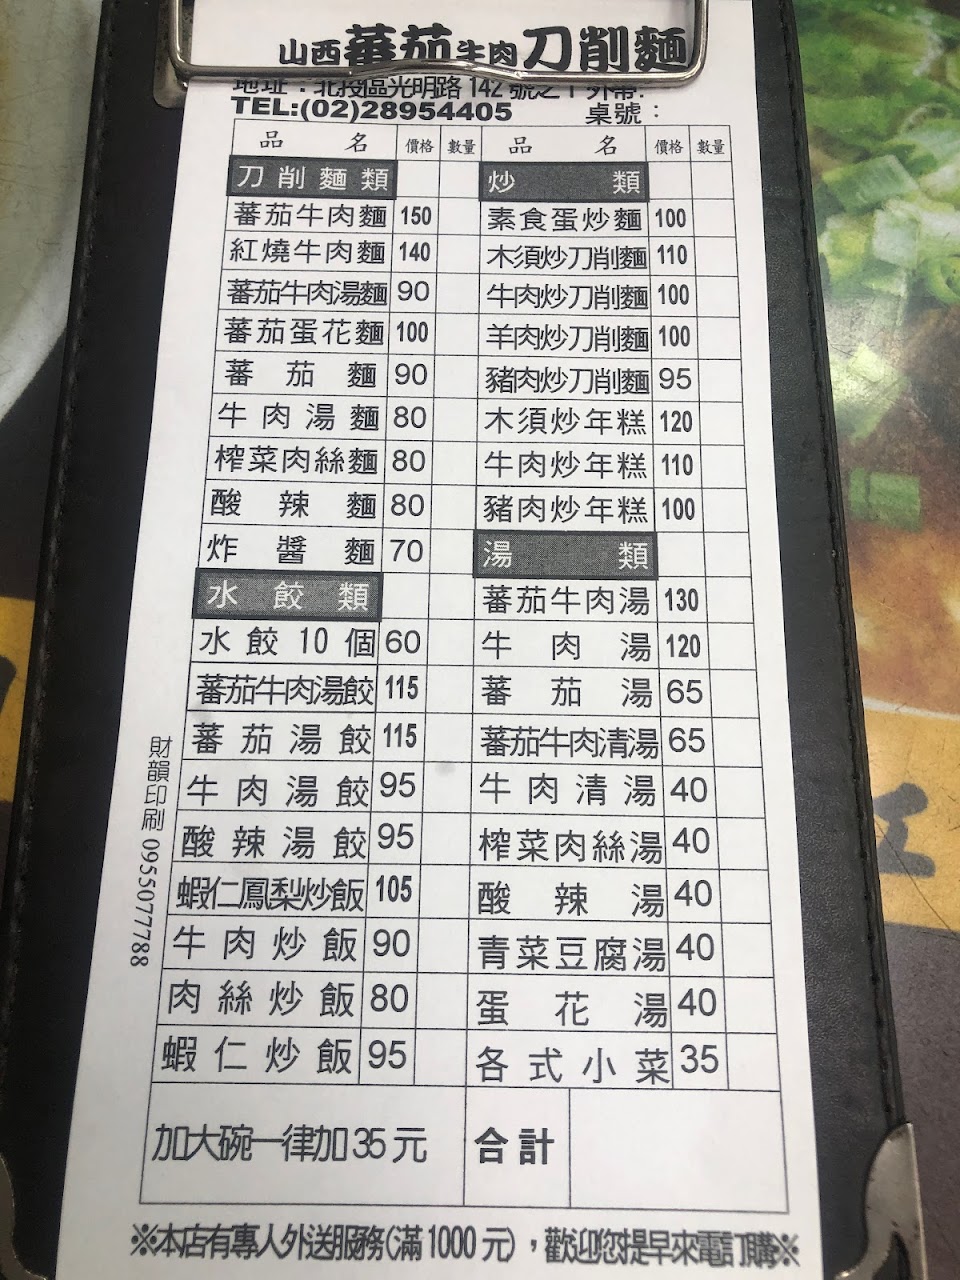 山西蕃茄牛肉刀削麵
地址：北投區光明路142號之1 外帶:
TEL:(02)28954405 桌號：
品名 價格 數量 品名 價格 數量
刀削麵類 炒類
蕃茄牛肉麵 150 素食蛋炒麵 100
紅燒牛肉麵 140 木須炒刀削麵 110
蕃茄牛肉湯麵 90 牛肉炒刀削麵 100
蕃茄蛋花麵 100 羊肉炒刀削麵 100
蕃茄麵 90 豬肉炒刀削麵 95
牛肉湯麵 80 木須炒年糕 120
榨菜肉絲麵 80 牛肉炒年糕 110
酸辣麵 80 豬肉炒年糕 100
炸醬麵 70 湯類
水餃類 蕃茄牛肉湯 130
水餃10個 60 牛肉湯 120
蕃茄牛肉湯餃 115 蕃茄湯 65
蕃茄湯餃 115 蕃茄牛肉清湯 65
牛肉湯餃 95 牛肉清湯 40
酸辣湯餃 95 榨菜肉絲湯 40
蝦仁鳳梨炒飯 105 酸辣湯 40
牛肉炒飯 90 青菜豆腐湯 40
肉絲炒飯 80 蛋花湯 40
蝦仁炒飯 95 各式小菜 35
加大碗一律加35元 合計
※本店有專人外送服務(滿1000元)，歡迎您提早來電訂購※
財韻印刷 0955077788